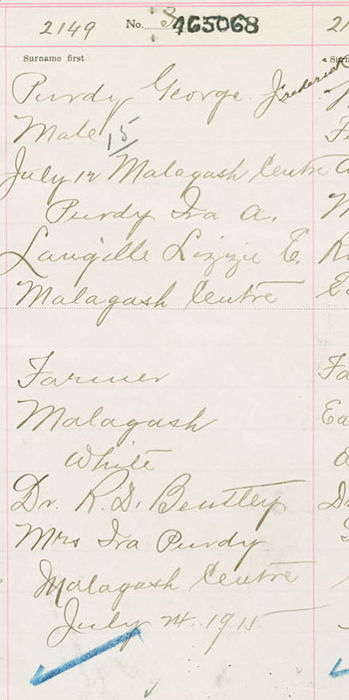 2149 No. 465068
Surname first
Purdy George Frederick
Male 15
July 12 Malagash Centre
Purdy Ira A.
Langille Lizzie E.
Malagash Centre
Farmer
Malagash
White
Dr. R. D. Bentley
Mrs Ira Purdy
Malagash Centre
July 24. 1915